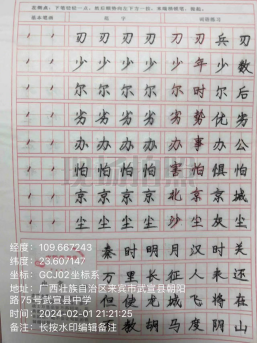 基本笔画
刃 刃 刃 刃 刃 兵 刃
少 少 少 少 年 少 数
尔 尔 尔 尔 时 尔 后
劣 劣 劣 劣 势 优 劣
办 办 办 办 事 办 公
怕 怕 怕 害 怕 惧 怕
京 京 京 北 京 京 城
尘 尘 尘 沙 尘 灰 尘
秦 时 明 月 汉 时 关
万 里 长 征 人 未 还
但 使 龙 城 飞 将 在
不 教 胡 马 度 阴 山
经度：109.667243
纬度：23.607147
坐标：GCJ02坐标系
地址：广西壮族自治区来宾市武宣县朝阳
路75号武宣县中学
时间：2024-02-01 21:21:25
备注：长按水印编辑备注